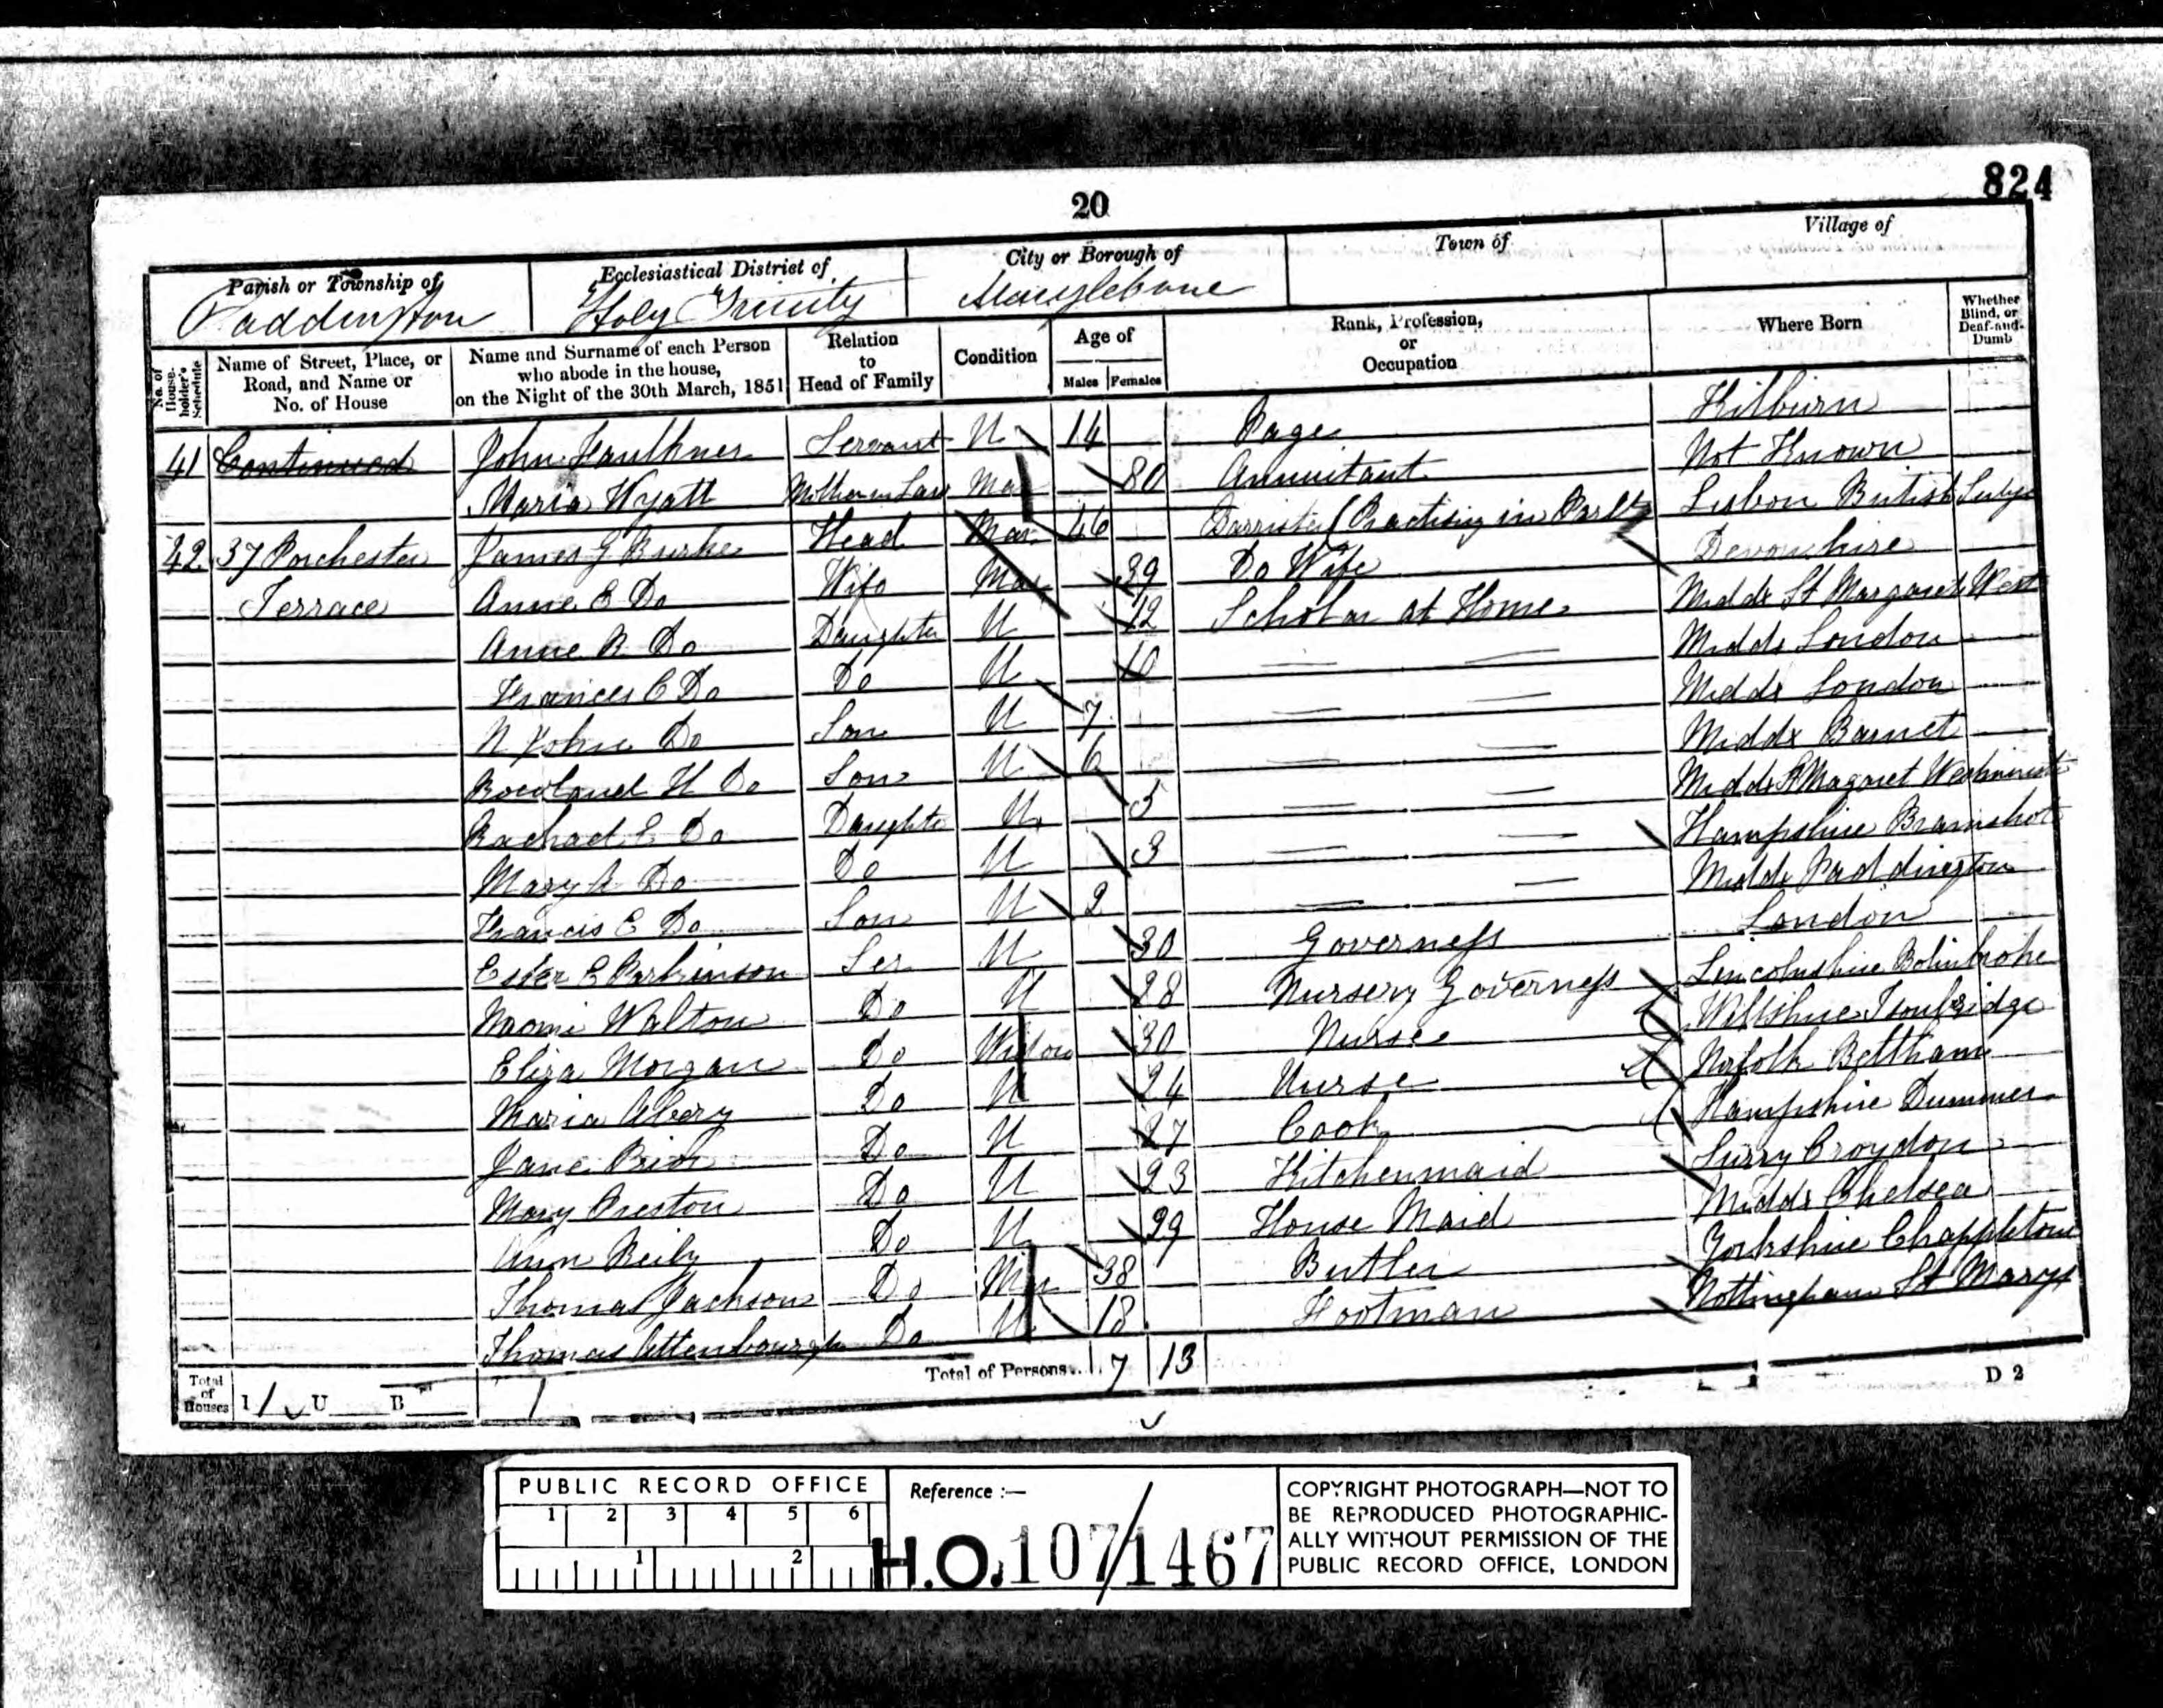 824
20
Parish or Township of Ecclesiastical District of City or Borough of Town of Village of
Paddington Holy Trinity Marylebone
No. of House-holder's Schedule Name of Street, Place, or Road, and Name or No. of House Name and Surname of each Person who abode in the house, on the Night of the 30th March, 1851 Relation to Head of Family Condition Age of Males Females Rank, Profession, or Occupation Where Born Whether Blind, or Deaf-and-Dumb
41 Continued John Faulkner Servant U 14 Page Kilburn
Maria Wyatt Mother in Law Ma 80 Annuitant Not Known
42 37 Porchester James G Burke Head Mar 46 Barrister (Practising in Parlt Lisbon British Subje
Terrace Anne E Do Wife Mar 39 Do Wife Devonshire
Anne R Do Daughter U 12 Scholar at Home Middx St Margarets West
Frances C Do Do U 10 Middx London
N John Do Son U 7 Middx London
Rowland H Do Son U 6 Middx Barnet
Rachael E Do Daughter U 5 Middx St Magaret Westminst
Mary A Do Do U 3 Hampshire Bramshot
Francis E Do Son U 2 Middx Paddington
Ester E Parkinson Ser U 30 Governess London
Naomi Walton Do U 28 Nursery Governess Lincolnshire Bolinbroke
Eliza Morgan Do Widow 30 Nurse Wiltshire
Maria Abery Do U 24 Nurse Norfolk
Jane Do U 27 Cook Hampshire Dummer
Mary Preston Do U 23 Kitchenmaid Surry Croydon
Ann Reily Do U 29 House Maid Middx Chelsea
Thomas Jackson Do Mar 38 Butler Yorkshire Chappletown
Thomas Attenbourgh Do U 18 Footman Nottingham St Marys
Total of Houses I 1 U B Total of Persons 7 13
D 2
PUBLIC RECORD OFFICE Reference :—
1 2 3 4 5 6
1 2
H.O. 107/1467
COPYRIGHT PHOTOGRAPH—NOT TO
BE REPRODUCED PHOTOGRAPHIC-
ALLY WITHOUT PERMISSION OF THE
PUBLIC RECORD OFFICE, LONDON